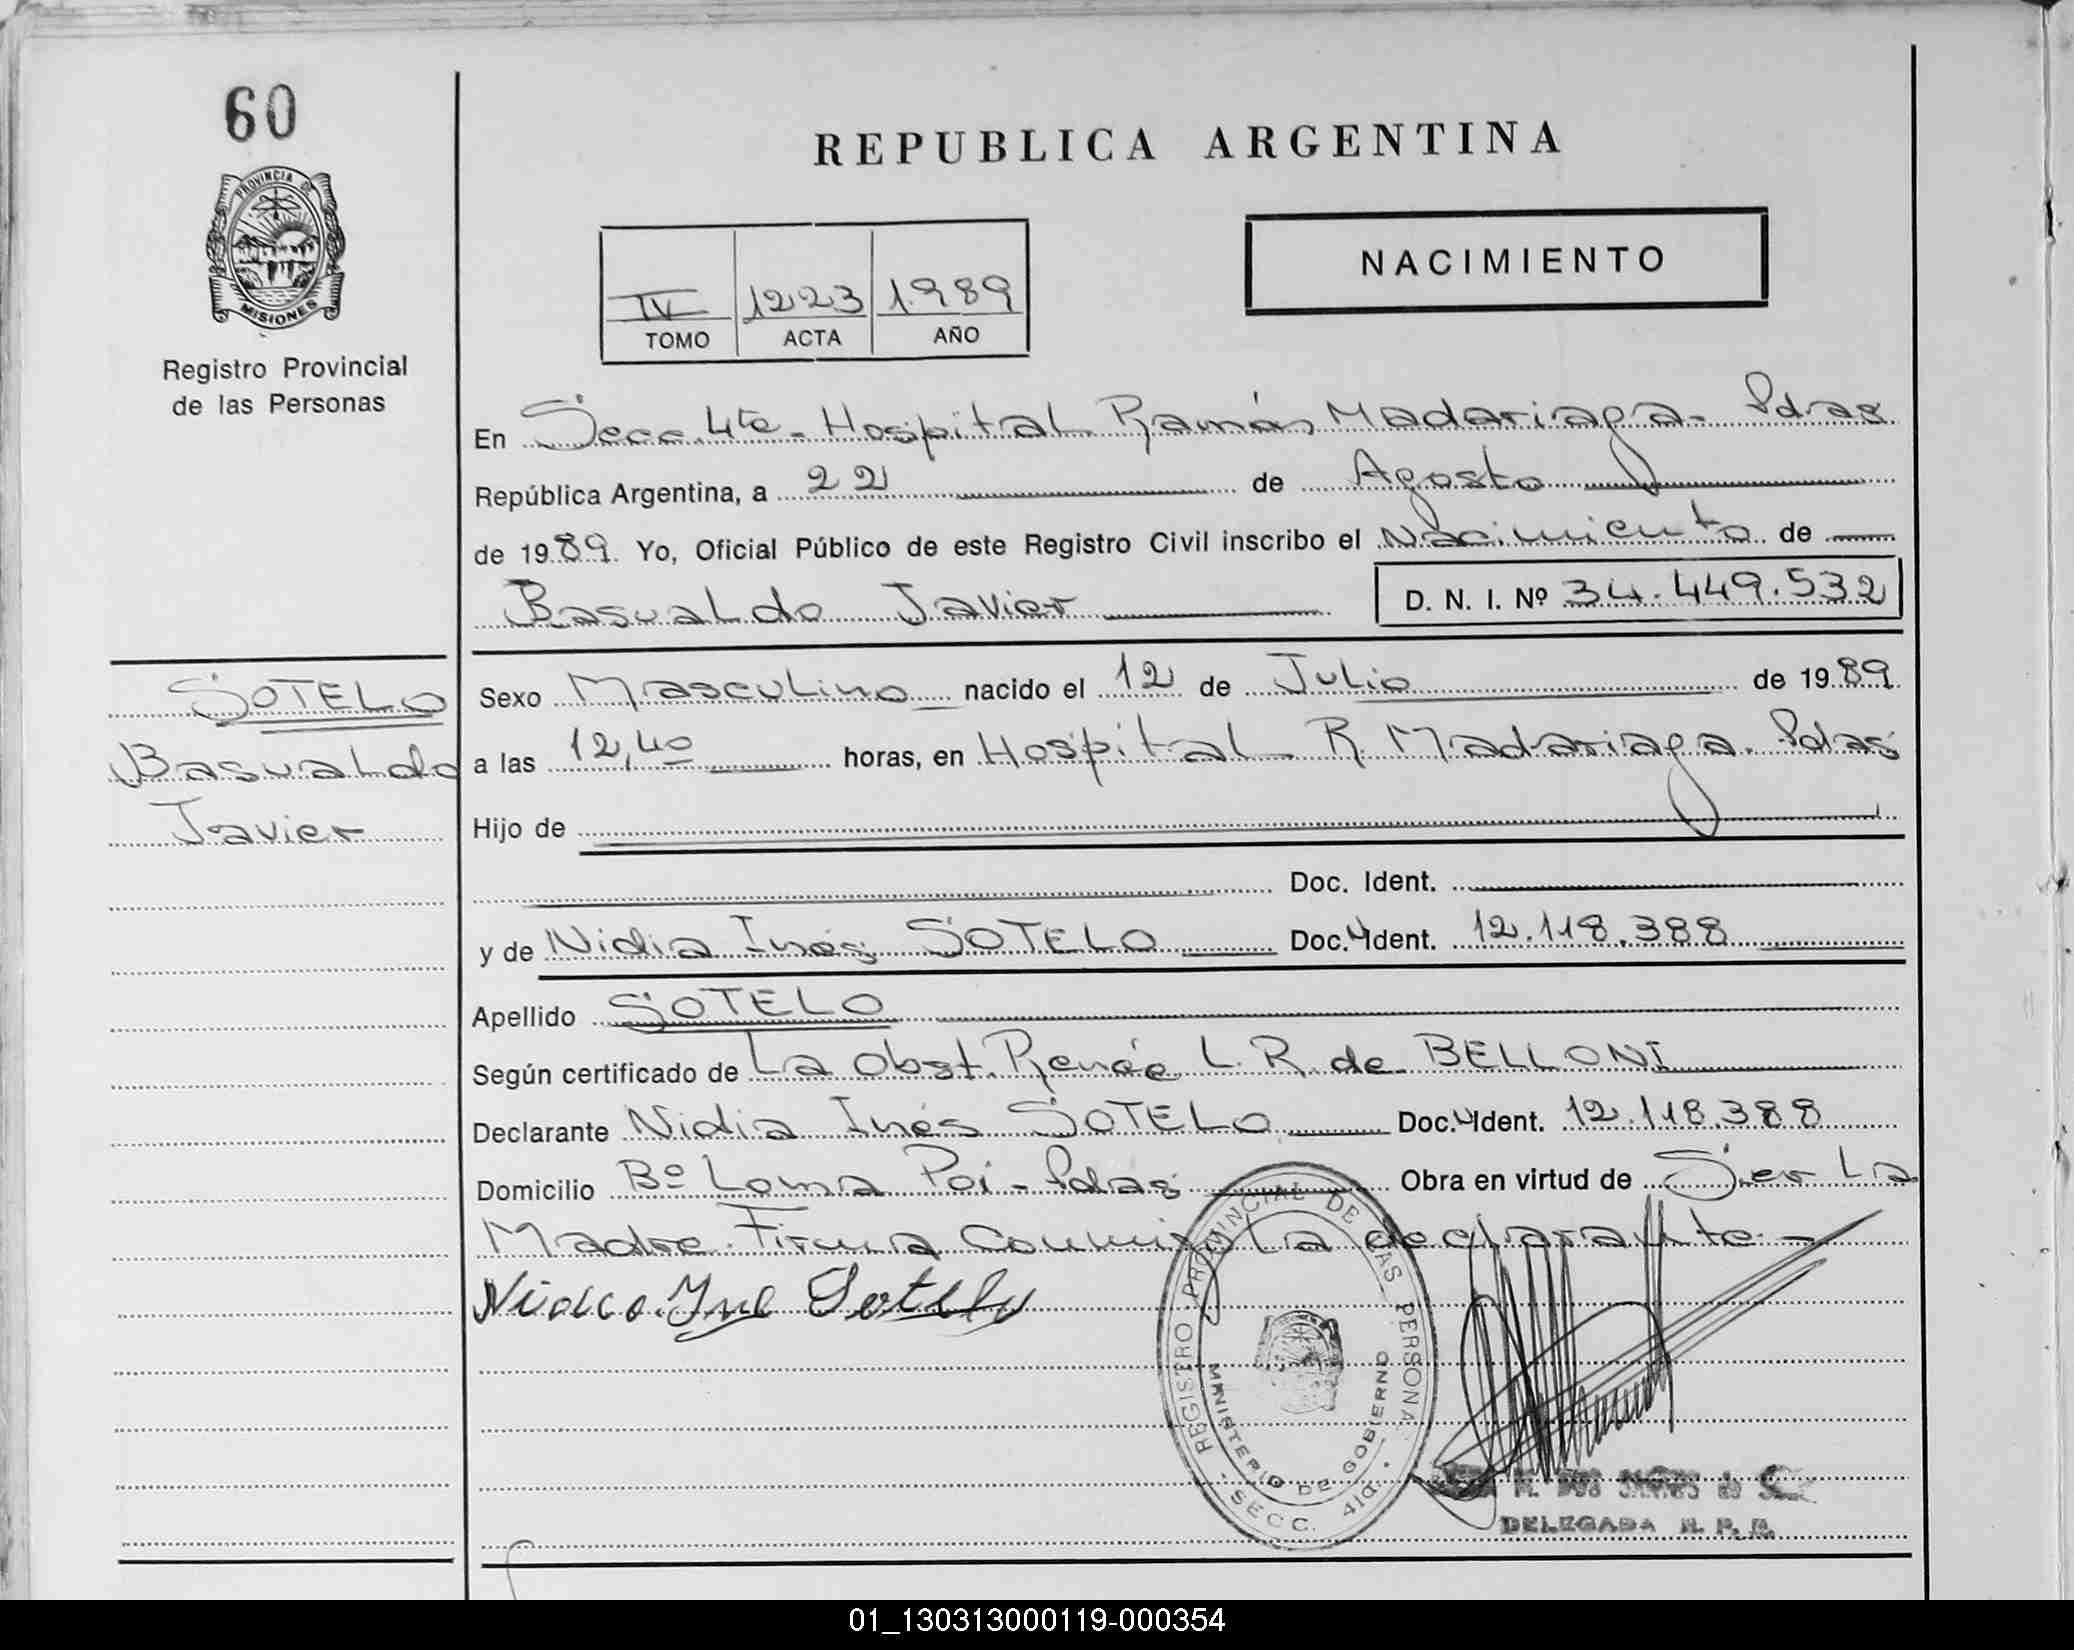 60
PROVINCIA DE
MISIONES
Registro Provincial
de las Personas
REPUBLICA ARGENTINA
NACIMIENTO
IV 1223 1989
TOMO ACTA AÑO
En Secc. 4ta - Hospital Ramón Madariaga - Pdas
República Argentina, a 22 de Agosto
de 1989. Yo, Oficial Público de este Registro Civil inscribo el Nacimiento de
Basualdo Javier D. N. I. Nº 34.449.532
SOTELO
Basualdo
Javier
Sexo Masculino nacido el 12 de Julio de 1989
a las 12,40 horas, en Hospital R. Madariaga. Pdas
Hijo de
Doc. Ident.
y de Nidia Inés SOTELO Doc. Ident. 12.118.388
Apellido SOTELO
Según certificado de La Obst. Renée L. R. de BELLONI
Declarante Nidia Inés SOTELO Doc. Ident. 12.118.388
Domicilio Bº Loma Poi - Pdas Obra en virtud de Ser La
Madre. Firma Conmigo La declarante -
REGISTRO PROVINCIAL DE LAS PERSONAS
MINISTERIO DE GOBIERNO
SECC. 4ta.
Sotelo
DELEGADA R. P. P.
01_130313000119-000354